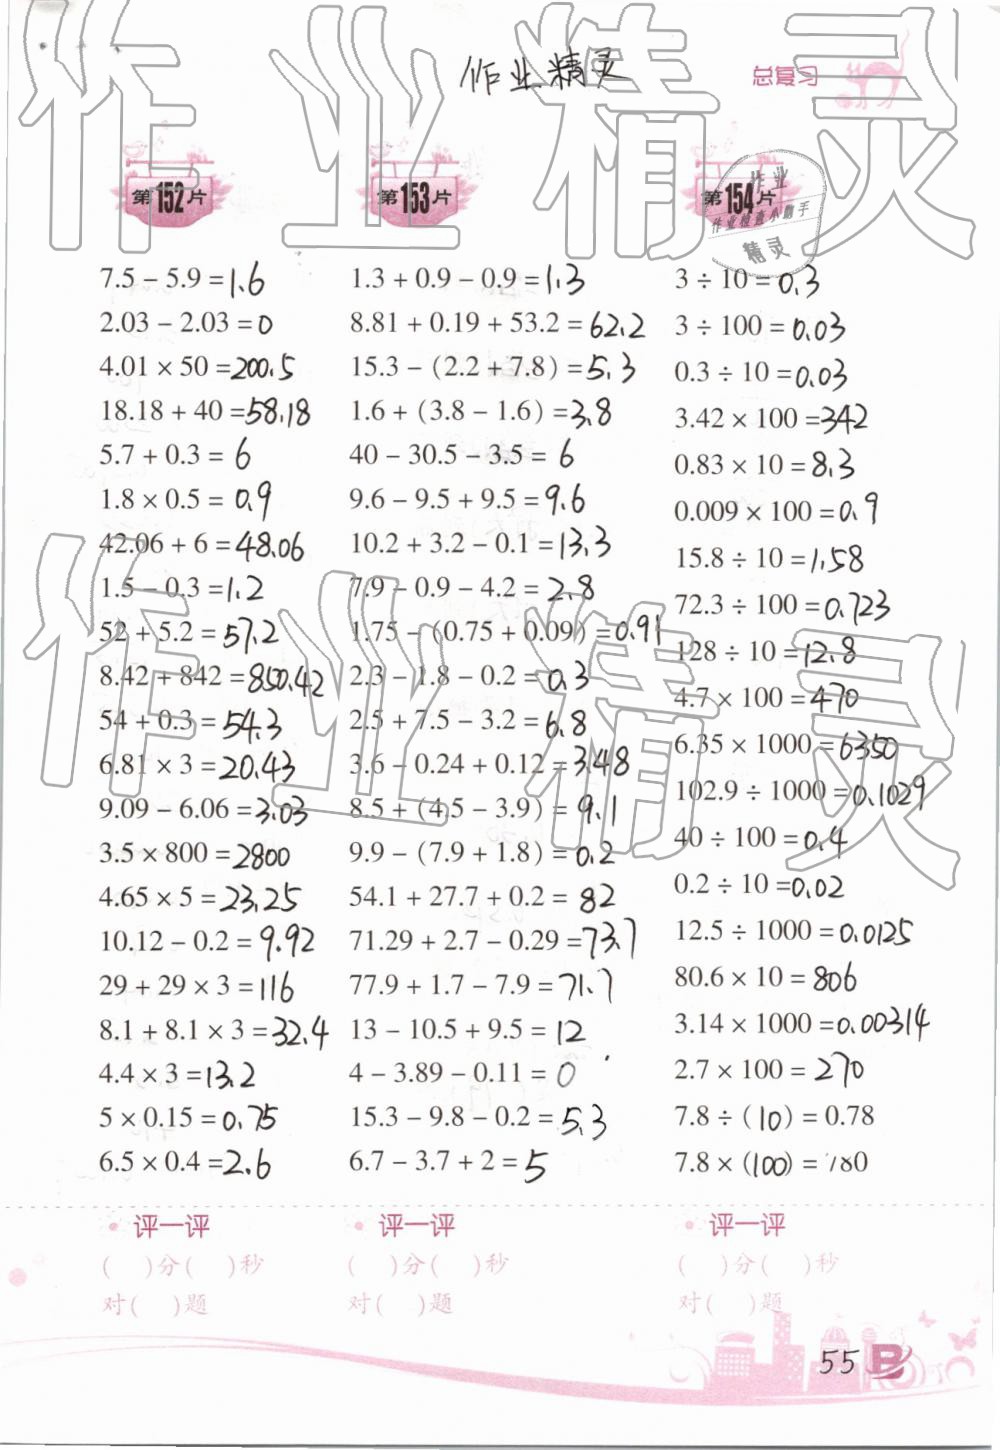 作业精灵
总复习
作业精灵
第152片
7.5 − 5.9 = 1.6
2.03 − 2.03 = 0
4.01 × 50 = 200.5
18.18 + 40 = 58.18
5.7 + 0.3 = 6
1.8 × 0.5 = 0.9
42.06 + 6 = 48.06
1.5 − 0.3 = 1.2
52 + 5.2 = 57.2
8.42 + 842 = 850.42
54 + 0.3 = 54.3
6.81 × 3 = 20.43
9.09 − 6.06 = 3.03
3.5 × 800 = 2800
4.65 × 5 = 23.25
10.12 − 0.2 = 9.92
29 + 29 × 3 = 116
8.1 + 8.1 × 3 = 32.4
4.4 × 3 = 13.2
5 × 0.15 = 0.75
6.5 × 0.4 = 2.6
评一评
(  )分(  )秒
对(  )题
第153片
1.3 + 0.9 − 0.9 = 1.3
8.81 + 0.19 + 53.2 = 62.2
15.3 − (2.2 + 7.8) = 5.3
1.6 + (3.8 − 1.6) = 3.8
40 − 30.5 − 3.5 = 6
9.6 − 9.5 + 9.5 = 9.6
10.2 + 3.2 − 0.1 = 13.3
7.9 − 0.9 − 4.2 = 2.8
1.75 − (0.75 + 0.09) = 0.91
2.3 − 1.8 − 0.2 = 0.3
2.5 + 7.5 − 3.2 = 6.8
3.6 − 0.24 + 0.12 = 3.48
8.5 + (4.5 − 3.9) = 9.1
9.9 − (7.9 + 1.8) = 0.2
54.1 + 27.7 + 0.2 = 82
71.29 + 2.7 − 0.29 = 73.7
77.9 + 1.7 − 7.9 = 71.7
13 − 10.5 + 9.5 = 12
4 − 3.89 − 0.11 = 0
15.3 − 9.8 − 0.2 = 5.3
6.7 − 3.7 + 2 = 5
评一评
(  )分(  )秒
对(  )题
第154片
作业
作业检查小助手
精灵
3 ÷ 10 = 0.3
3 ÷ 100 = 0.03
0.3 ÷ 10 = 0.03
3.42 × 100 = 342
0.83 × 10 = 8.3
0.009 × 100 = 0.9
15.8 ÷ 10 = 1.58
72.3 ÷ 100 = 0.723
128 ÷ 10 = 12.8
4.7 × 100 = 470
6.35 × 1000 = 6350
102.9 ÷ 1000 = 0.1029
40 ÷ 100 = 0.4
0.2 ÷ 10 = 0.02
12.5 ÷ 1000 = 0.0125
80.6 × 10 = 806
3.14 × 1000 = 0.00314
2.7 × 100 = 270
7.8 ÷ (10) = 0.78
7.8 × (100) = 780
评一评
(  )分(  )秒
对(  )题
作业精灵
55 B